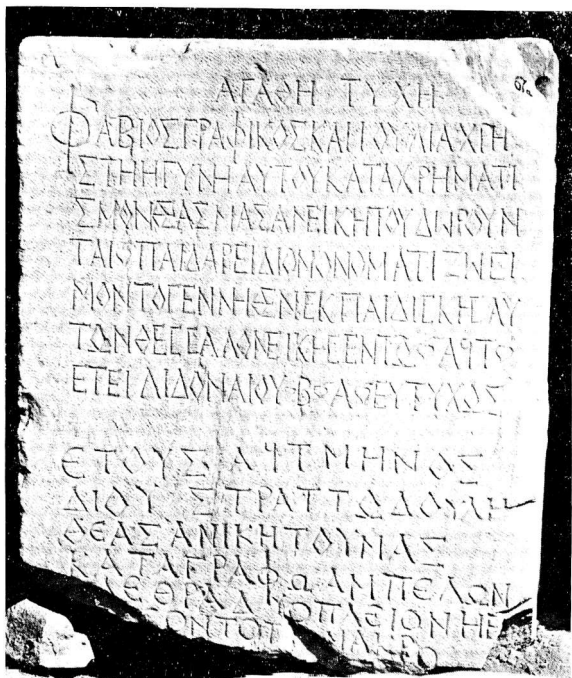 ΑΓΑΘΗ ΤΥΧΗ
ΦΑΒΙΟΣΓΡΑΦΙΚΟΣΚΑΙΙΟΥΛΙΑΧΡΗ
ΣΤΗΗΓΥΝΗΑΥΤΟΥΚΑΤΑΧΡΗΜΑΤΙ
ΣΜΟΝΘΕΑΣΜΑΣΑΝΕΙΚΗΤΟΥΔΩΡΟΥΝ
ΤΑΙΠΑΙΔΑΡΕΙΔΙΟΝΟΝΟΜΑΤΙΖΩΣΙ
ΜΟΝΤΟΓΕΝΝΗΘΕΝΕΚΠΑΙΔΙΣΚΗΣΑΥ
ΤΩΝΘΕΣΣΑΛΟΝΕΙΚΗΣΕΝΤΩΑΨΤ
ΕΤΕΙ ΕΥΤΥΧΩΣ
ΕΤΟΥΣ ΑΨΤ ΜΗΝΟΣ
ΔΙΟΥ ΣΤΡΑΤΤΩΔΟΥΛΗ
ΘΕΑΣΑΝΙΚΗΤΟΥΜΑΣ
ΚΑΤΑΓΡΑΦΩΑΜΠΕΛΩΝ
ΛΕΘΡΑΔ ΟΠΛΕΙΟΝΗΕ
ΟΝΤΟΠ ΜΑΚΡΟ